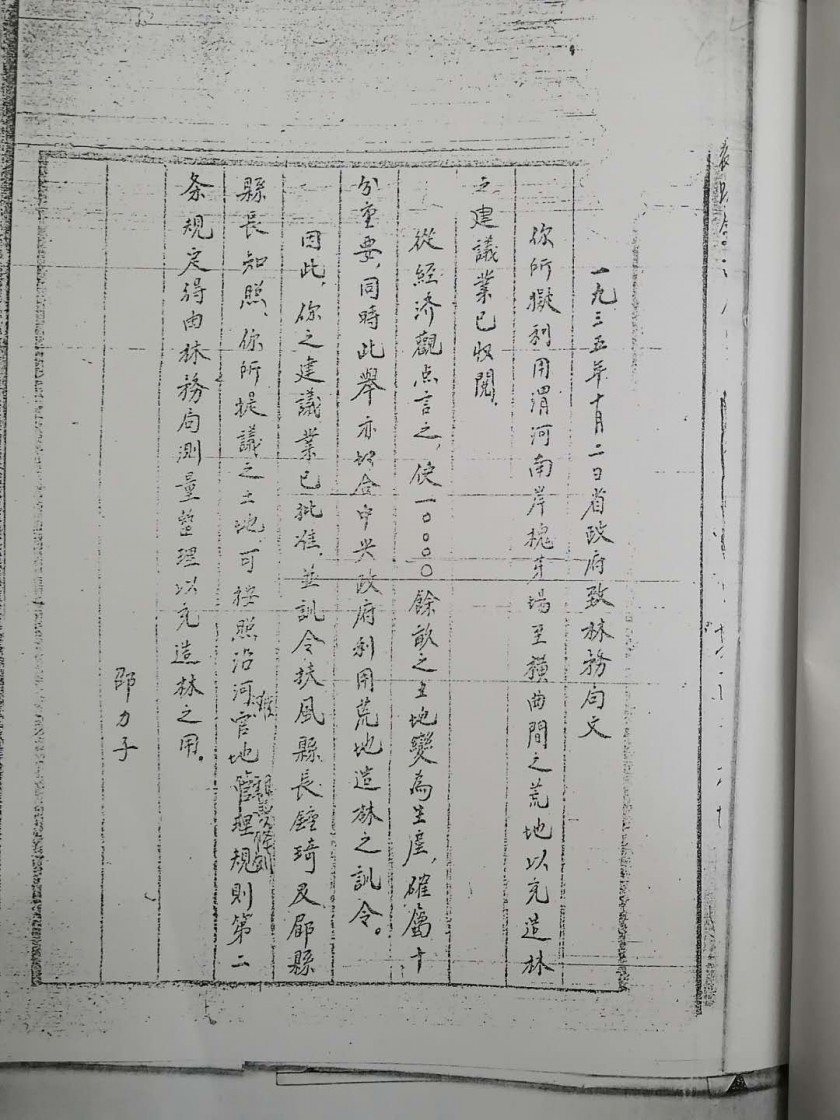 一九三五年十月二日省政府致林務局文
你所擬利用渭河南岸槐芽場至橫曲間之荒地以充造林
之建議業已收閱.
從經济觀点言之,使一0000餘畝之土地變為生産,確屬十
分重要,同時此舉亦切合中央政府利用荒地造林之訓令。
因此,你之建議業已批准,並訓令扶風縣長鍾琦及郿縣
縣長知照.你所提議之土地,可按照沿河官地管理規則第二
条規定得由林務局測量整理以充造林之用。
邵力子